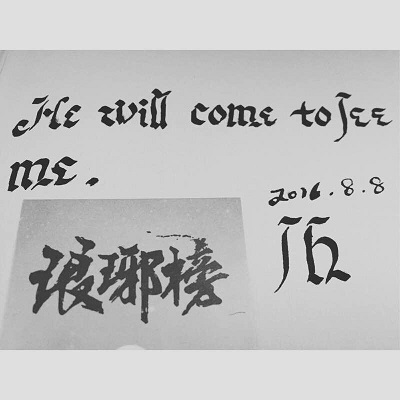 He will come to see
me.
2016.8.8
JH
琅琊榜